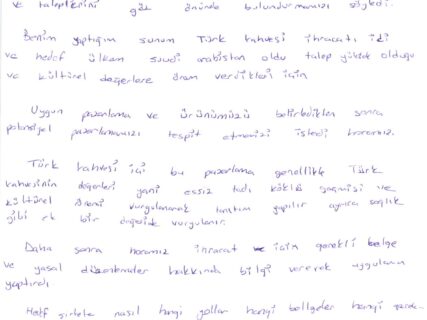 ve taleplerini göz önünde bulundurmamızı söyledi.
Benim yaptığım sunum Türk kahvesi ihracatı idi
ve hedef ülkem suudi arabistan oldu talep yüksek olduğu
ve kültürel değerlere önem verdikleri için
Uygun pazarlama ve ürünümüzü belirledikten sonra
potansiyel pazarlamamızı tespit etmemizi istedi hocamız.
Türk kahvesi için bu pazarlama genellikle Türk
kahvesinin değerleri yani eşsiz tadı köklü geçmişi ve
kültürel önemi vurgulanarak tanıtım yapılır ayrıca sağlık
gibi ek bir değeride vurgulanır.
Daha sonra hocamız ihracat için gerekli belge
ve yasal düzenlemeler hakkında bilgi vererek uygulama
yaptırdı
nasıl hangi yollar hangi belgeler hangi